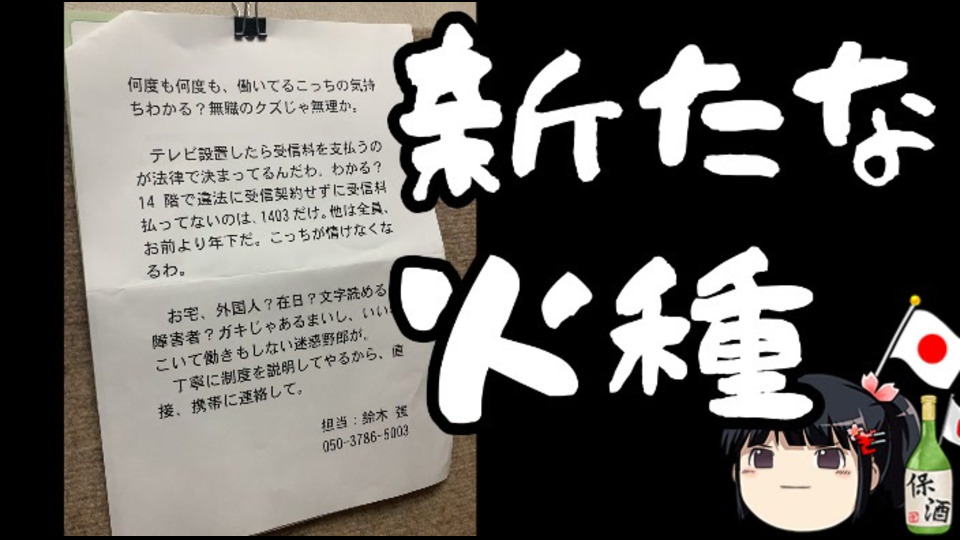 何度も何度も、働いてるこっちの気持
ちわかる？無職のクズじゃ無理か。
テレビ設置したら受信料を支払うの
が法律で決まってるんだわ。わかる？
14 階で違法に受信契約せずに受信料
払ってないのは、1403だけ。他は全員、
お前より年下だ。こっちが情けなくな
るわ。
お宅、外国人？在日？文字読める
障害者？ガキじゃあるまいし、いい
こいて働きもしない迷惑野郎が。
丁寧に制度を説明してやるから、直
接、携帯に連絡して。
担当：鈴木
050-3786-5003
新たな
火種
保酒